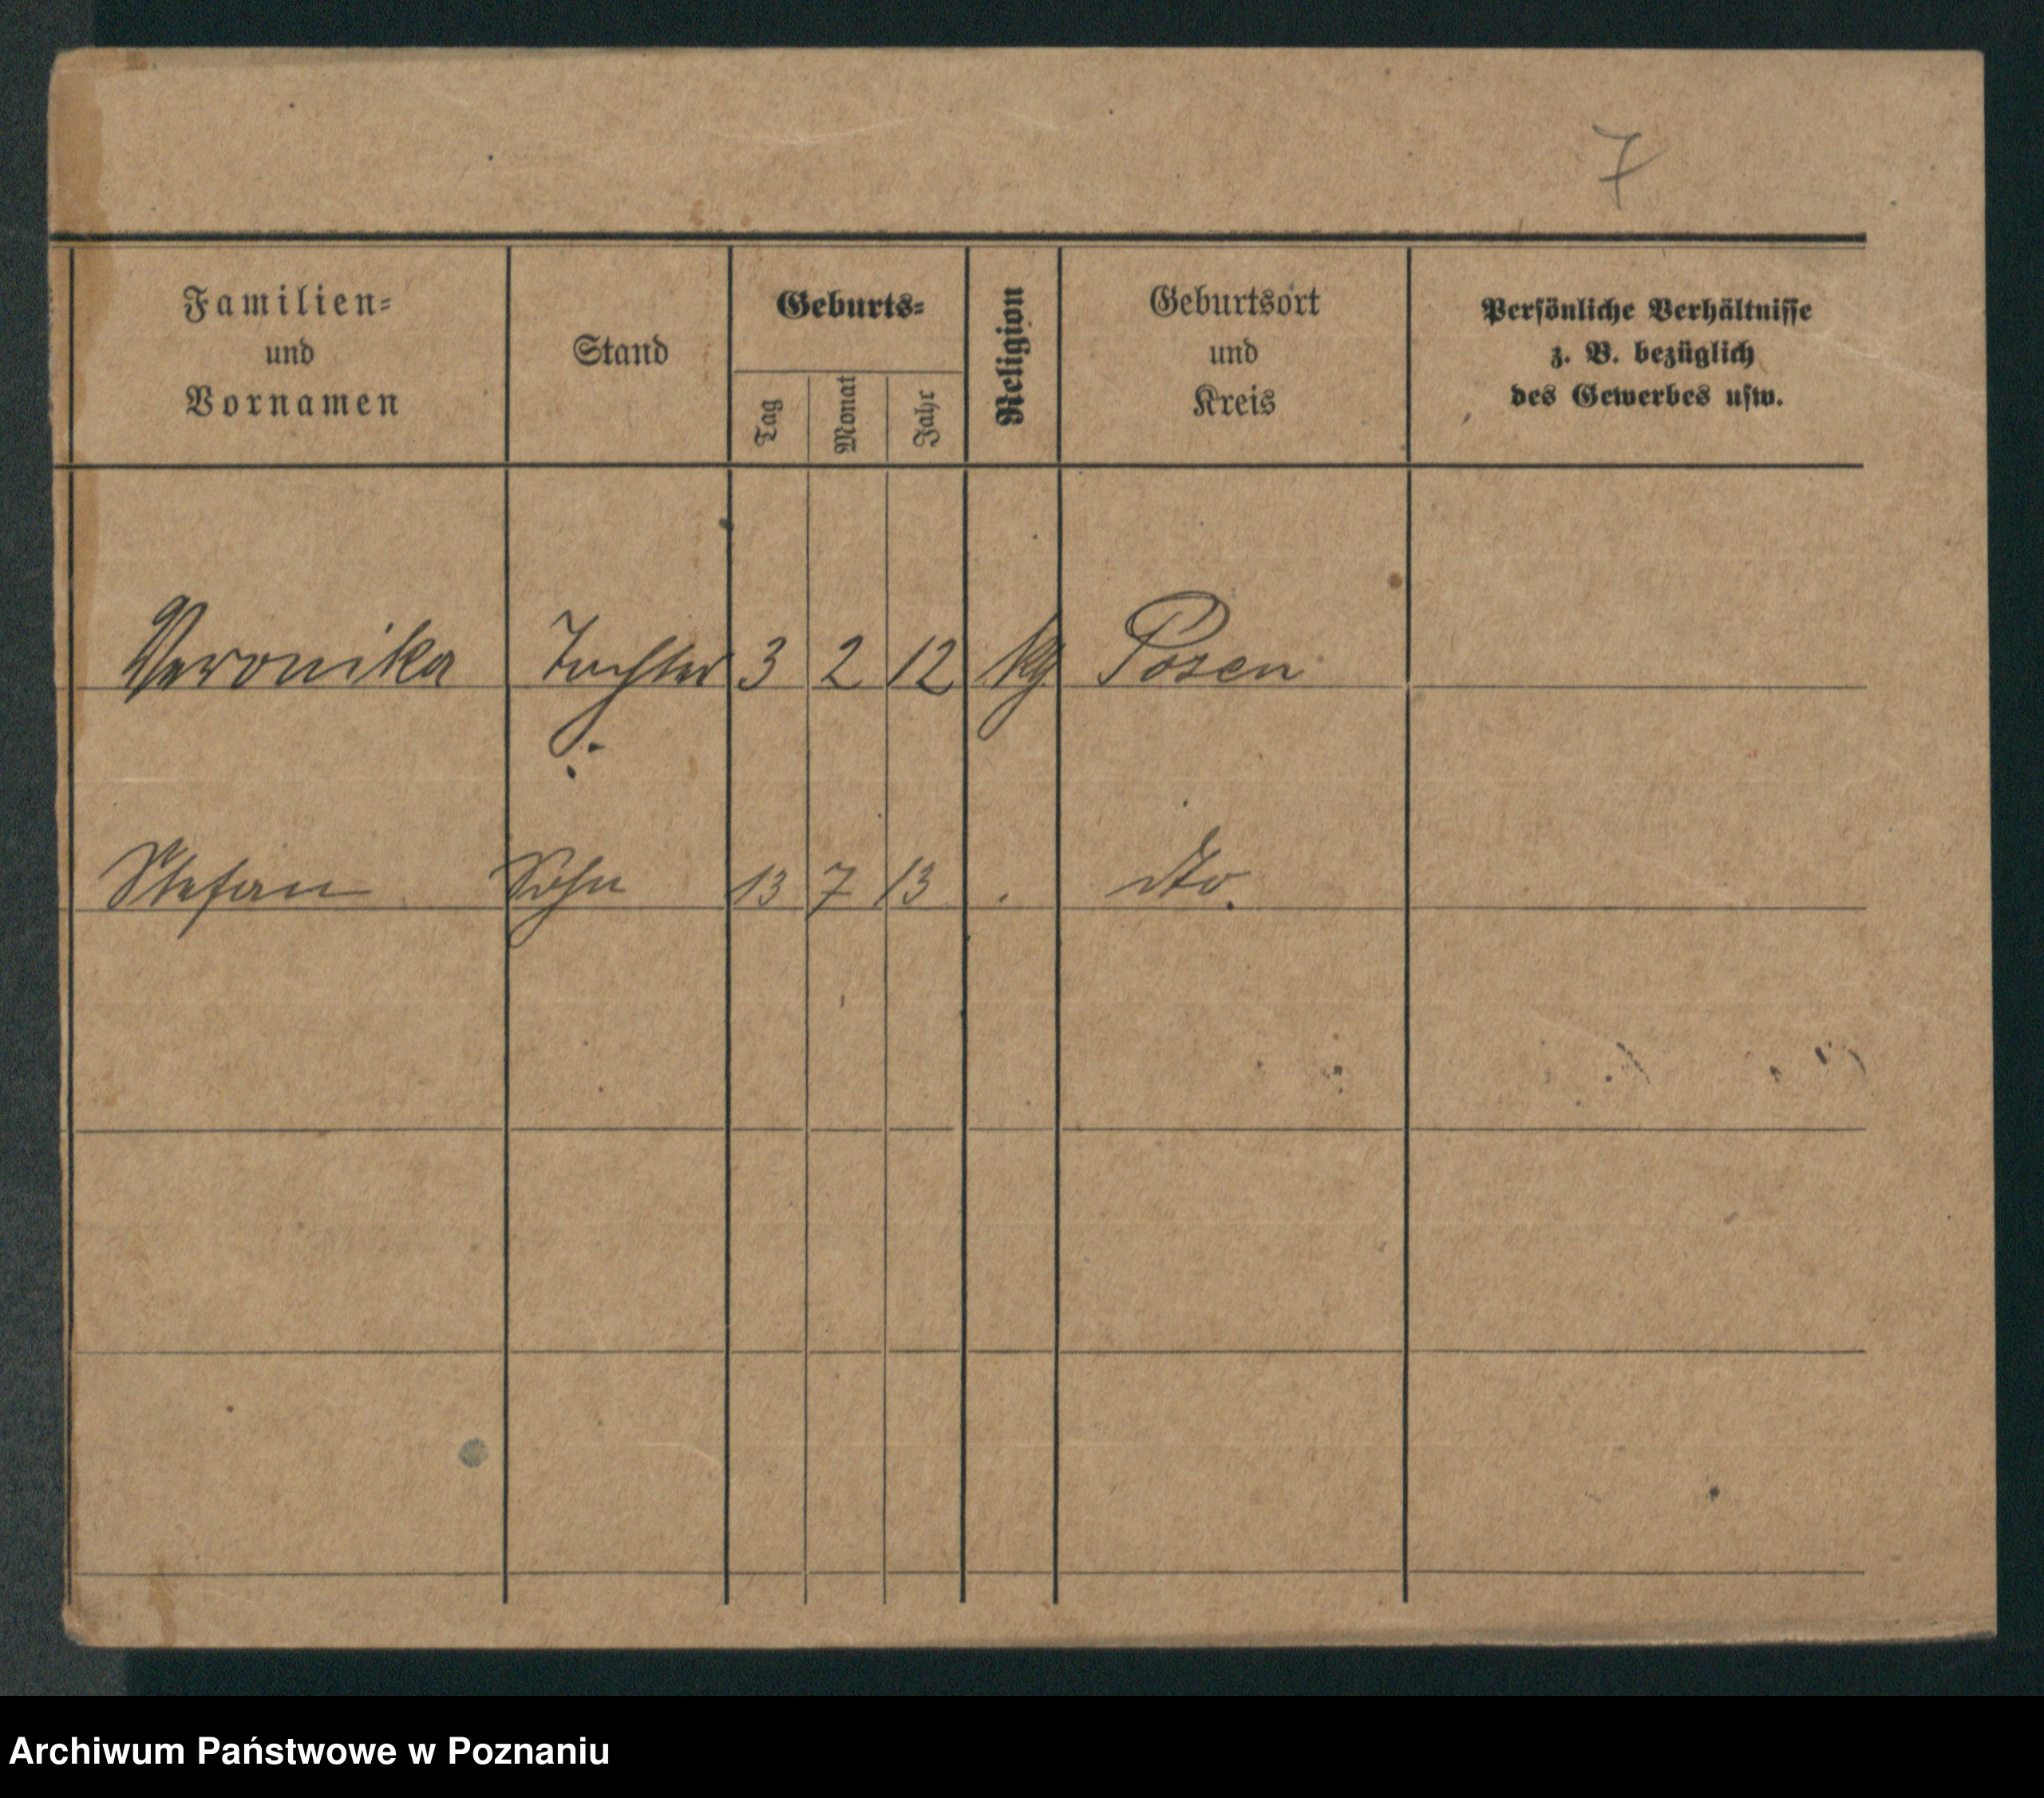 7
Familien=
und
Vornamen
Stand
Geburts=
Tag
Monat
Jahr
Religion
Geburtsort
und
Kreis
Persönliche Verhältnisse
z. B. bezüglich
des Gewerbes usw.
Veronika Tochter 3 2 12 Posen
Stefan Sohn 13 7 13 . dto.
Archiwum Państwowe w Poznaniu